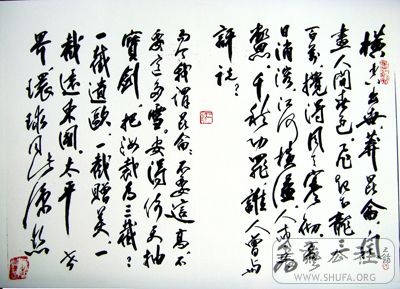 横空出世,莽昆侖,阅
尽人间春色。飞起玉龙三
百万,搅得周天寒彻。夏
日消溶,江河横溢,人或为鱼
鳖。千秋功罪,谁人曾与
评说?
而今我谓昆侖:不要这高,不
要这多雪。安得倚天抽
宝剑,把汝裁为三截?
一截遗欧,一截赠美,一
截还东国。太平世
界,环球同此凉热
WWW.SHUFA.ORG